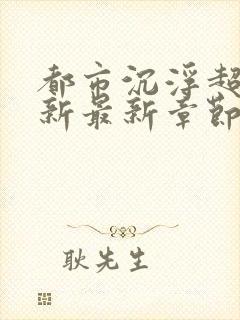 都市沉浮超
新最新章節
耿先生